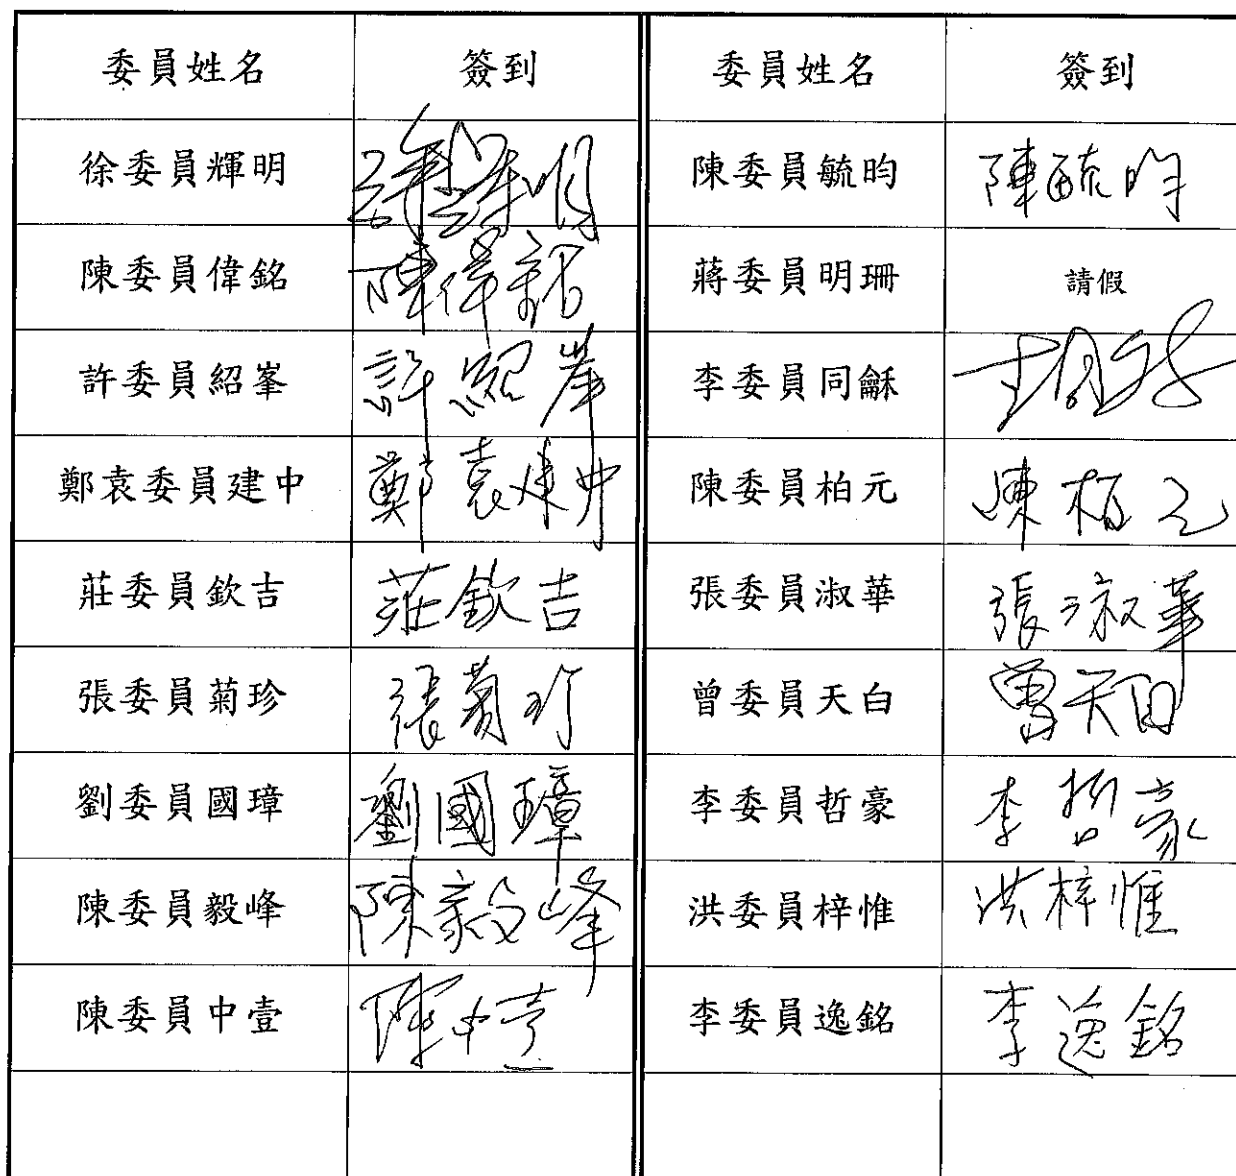 委員姓名 簽到 委員姓名 簽到
徐委員輝明 陳委員毓昀 陳毓昀
陳委員偉銘 陳偉銘 蔣委員明珊 請假
許委員紹峯 許紹峯 李委員同龢
鄭袁委員建中 鄭袁建中 陳委員柏元 陳柏元
莊委員欽吉 莊欽吉 張委員淑華 張淑華
張委員菊珍 張菊珍 曾委員天白 曾天白
劉委員國璋 劉國璋 李委員哲豪 李哲豪
陳委員毅峰 陳毅峰 洪委員梓惟 洪梓惟
陳委員中壹 陳中壹 李委員逸銘 李逸銘